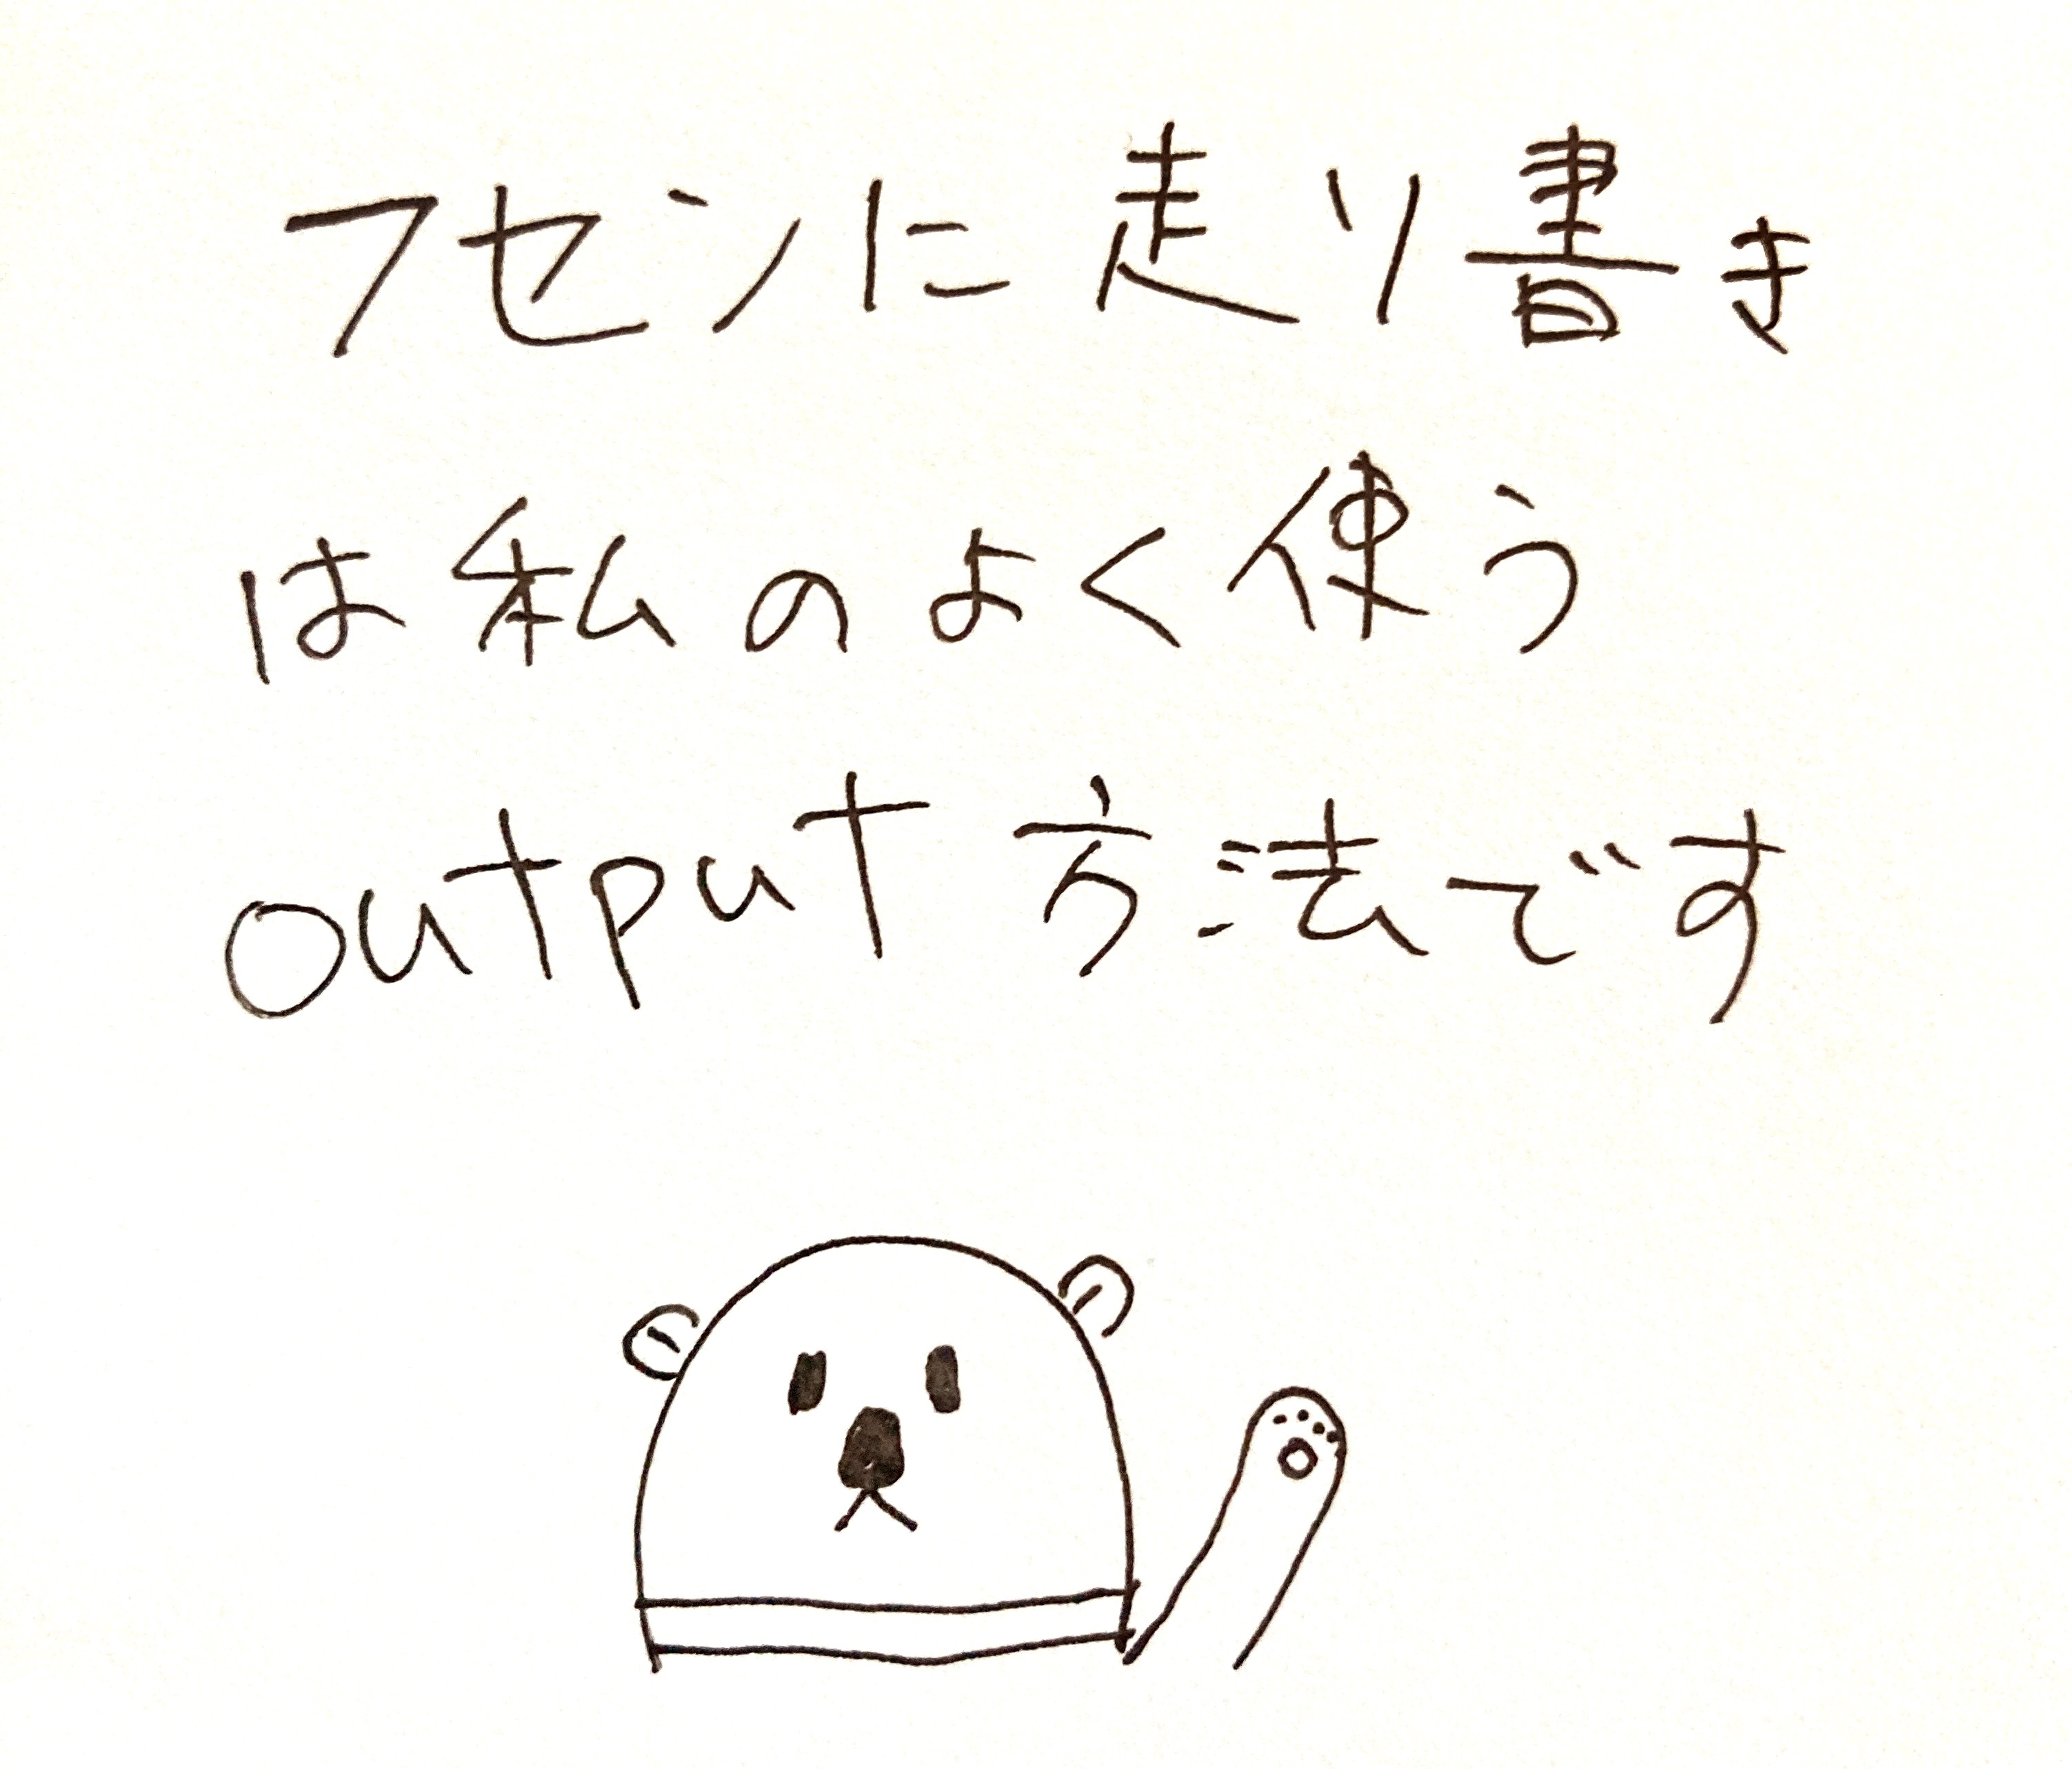 フセンに走り書き
は私のよく使う
output方法です